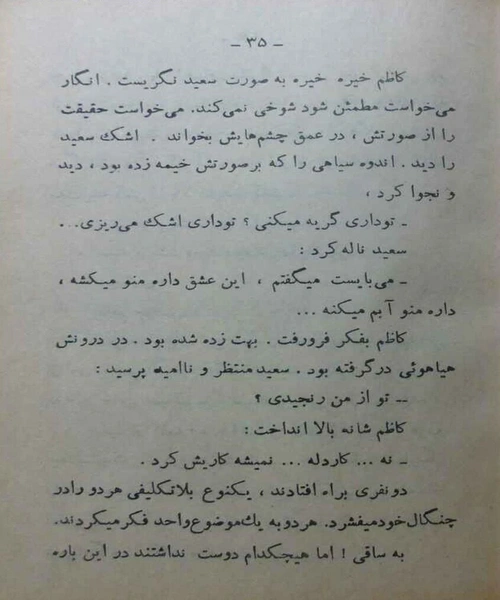 - ۳۵ -
کاظم خیره خیره به صورت سعید نگریست . انگار
می‌خواست مطمئن شود شوخی نمی‌کند. می‌خواست حقیقت
را از صورتش ، در عمق چشم‌هایش بخواند . اشك سعید
را دید . اندوه سیاهی را که برصورتش خیمه زده بود ، دید
و نجوا کرد ،
ـ توداری گریه میکنی ؟ توداری اشك می‌ریزی...
سعید ناله کرد :
ـ می‌بایست میگفتم ، این عشق داره منو میکشه ،
داره منو آبم میکنه ...
کاظم بفکر فرورفت . بهت زده شده بود . در درونش
هیاهوئی درگرفته بود . سعید منتظر و ناامید پرسید :
ــ تو از من رنجیدی ؟
کاظم شانه بالا انداخت :
ـ نه ... کاردله ... نمیشه کاریش کرد .
دو نفری براه افتادند ، یکنوع بلاتکلیفی هردو رادر
چنگال خودمیفشرد. هردو به يك‌موضوع‌واحد فکرمیکردند.
به ساقی ! اما هیچکدام دوست نداشتند در این باره